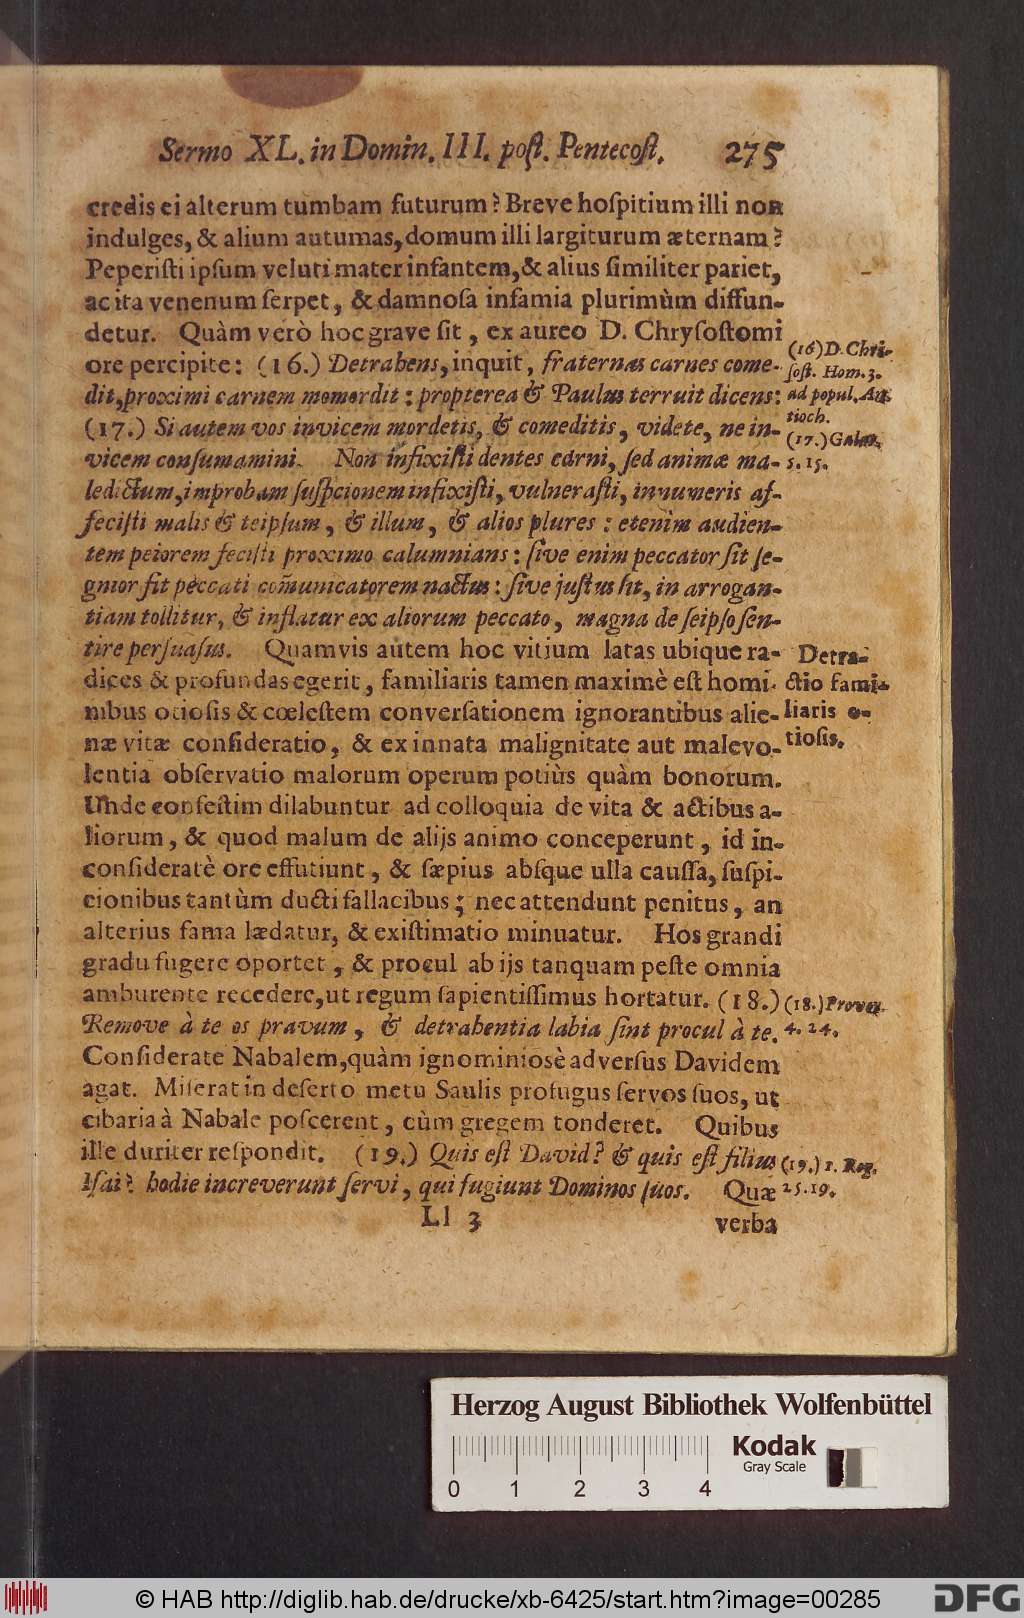 Sermo XL. in Domin. III. poſt. Pentecoſt. 275
credis ei alterum tumbam futurum? Breve hoſpitium illi non
indulges, & alium autumas, domum illi largiturum æternam?
Peperiſti ipſum veluti mater infantem, & alius ſimiliter pariet,
ac ita venenum ſerpet, & damnoſa infamia plurimùm diffun-
detur. Quàm verò hoc grave ſit, ex aureo D. Chryſoſtomi
ore percipite: (16.) Detrahens, inquit, fraternas carnes come-
dit, proximi carnem momordit: propterea & Paulus terruit dicens:
(17.) Si autem vos invicem mordetis, & comeditis, videte, ne in-
vicem conſumamini. Non infixiſti dentes carni, ſed animæ ma-
ledictum, improbam ſuſpcionem infixiſti, vulneraſti, innumeris af-
feciſti malis & teipſum, & illum, & alios plures: etenim audien-
tem peiorem feciſti proximo calumnians: ſive enim peccator ſit ſe-
gnior fit peccati com̃unicatorem nactus: ſive juſtus ſit, in arrogan-
tiam tollitur, & inflatur ex aliorum peccato, magna de ſeipſo ſen-
tire perſuaſus. Quamvis autem hoc vitium latas ubique ra-
dices & profundas egerit, familiaris tamen maximè eſt homi-
nibus otioſis & cœleſtem converſationem ignorantibus alie-
næ vitæ conſideratio, & ex innata malignitate aut malevo-
lentia obſervatio malorum operum potiùs quàm bonorum.
Unde confeſtim dilabuntur ad colloquia de vita & actibus a-
liorum, & quod malum de alijs animo conceperunt, id in-
conſideratè ore effutiunt, & ſæpius abſque ulla cauſſa, ſuſpi-
cionibus tantùm ducti fallacibus; nec attendunt penitus, an
alterius fama lædatur, & exiſtimatio minuatur. Hos grandi
gradu fugere oportet, & procul ab ijs tanquam peſte omnia
amburente recedere, ut regum ſapientiſſimus hortatur. (18.)
Remove à te os pravum, & detrahentia labia ſint procul à te.
Conſiderate Nabalem, quàm ignominiosè adverſus Davidem
agat. Miſerat in deſerto metu Saulis profugus ſervos ſuos, ut
cibaria à Nabale poſcerent, cùm gregem tonderet. Quibus
ille duriter reſpondit. (19.) Quis eſt David? & quis eſt filius
Iſai? hodie increverunt ſervi, qui fugiunt Dominos ſuos. Quæ
Ll 3 verba
(16) D. Chri-
ſoſt. Hom. 3.
ad popul. An-
tioch.
(17.) Galat.
5. 15.
Detra-
ctio fami-
liaris o-
tioſis.
(18.) Prover.
4. 24.
(19.) 1. Reg.
25. 19.
Herzog August Bibliothek Wolfenbüttel
0 1 2 3 4
Kodak
Gray Scale
© HAB http://diglib.hab.de/drucke/xb-6425/start.htm?image=00285
DFG